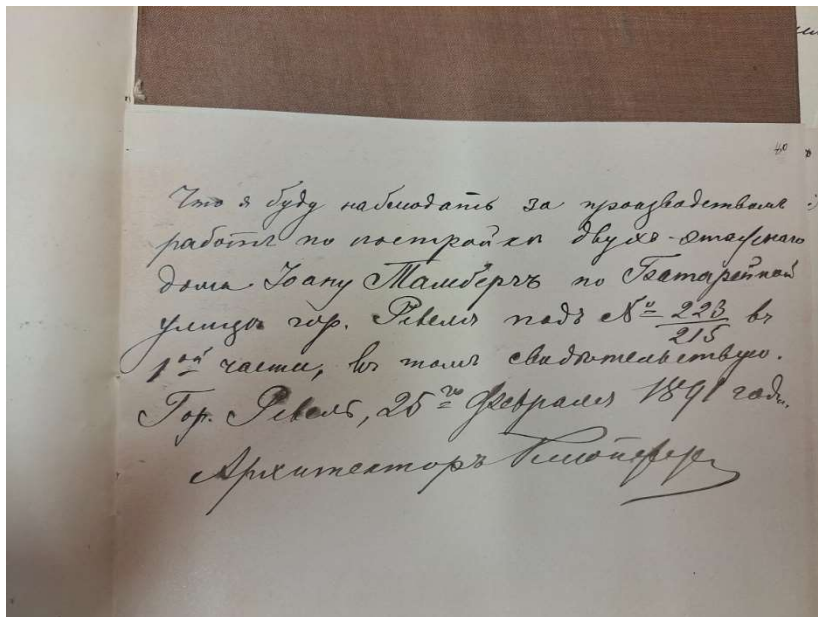 40
Что я буду наблюдать за производствомъ
работъ по постройкѣ двухъ-этажнаго
дома Іоану Тамбергъ по Батарейной
улицѣ гор. Ревеля подъ № 223/215 въ
1ой части, въ томъ свидѣтельствую.
Гор. Ревель, 25го Февраля 1891 года.
Архитекторъ